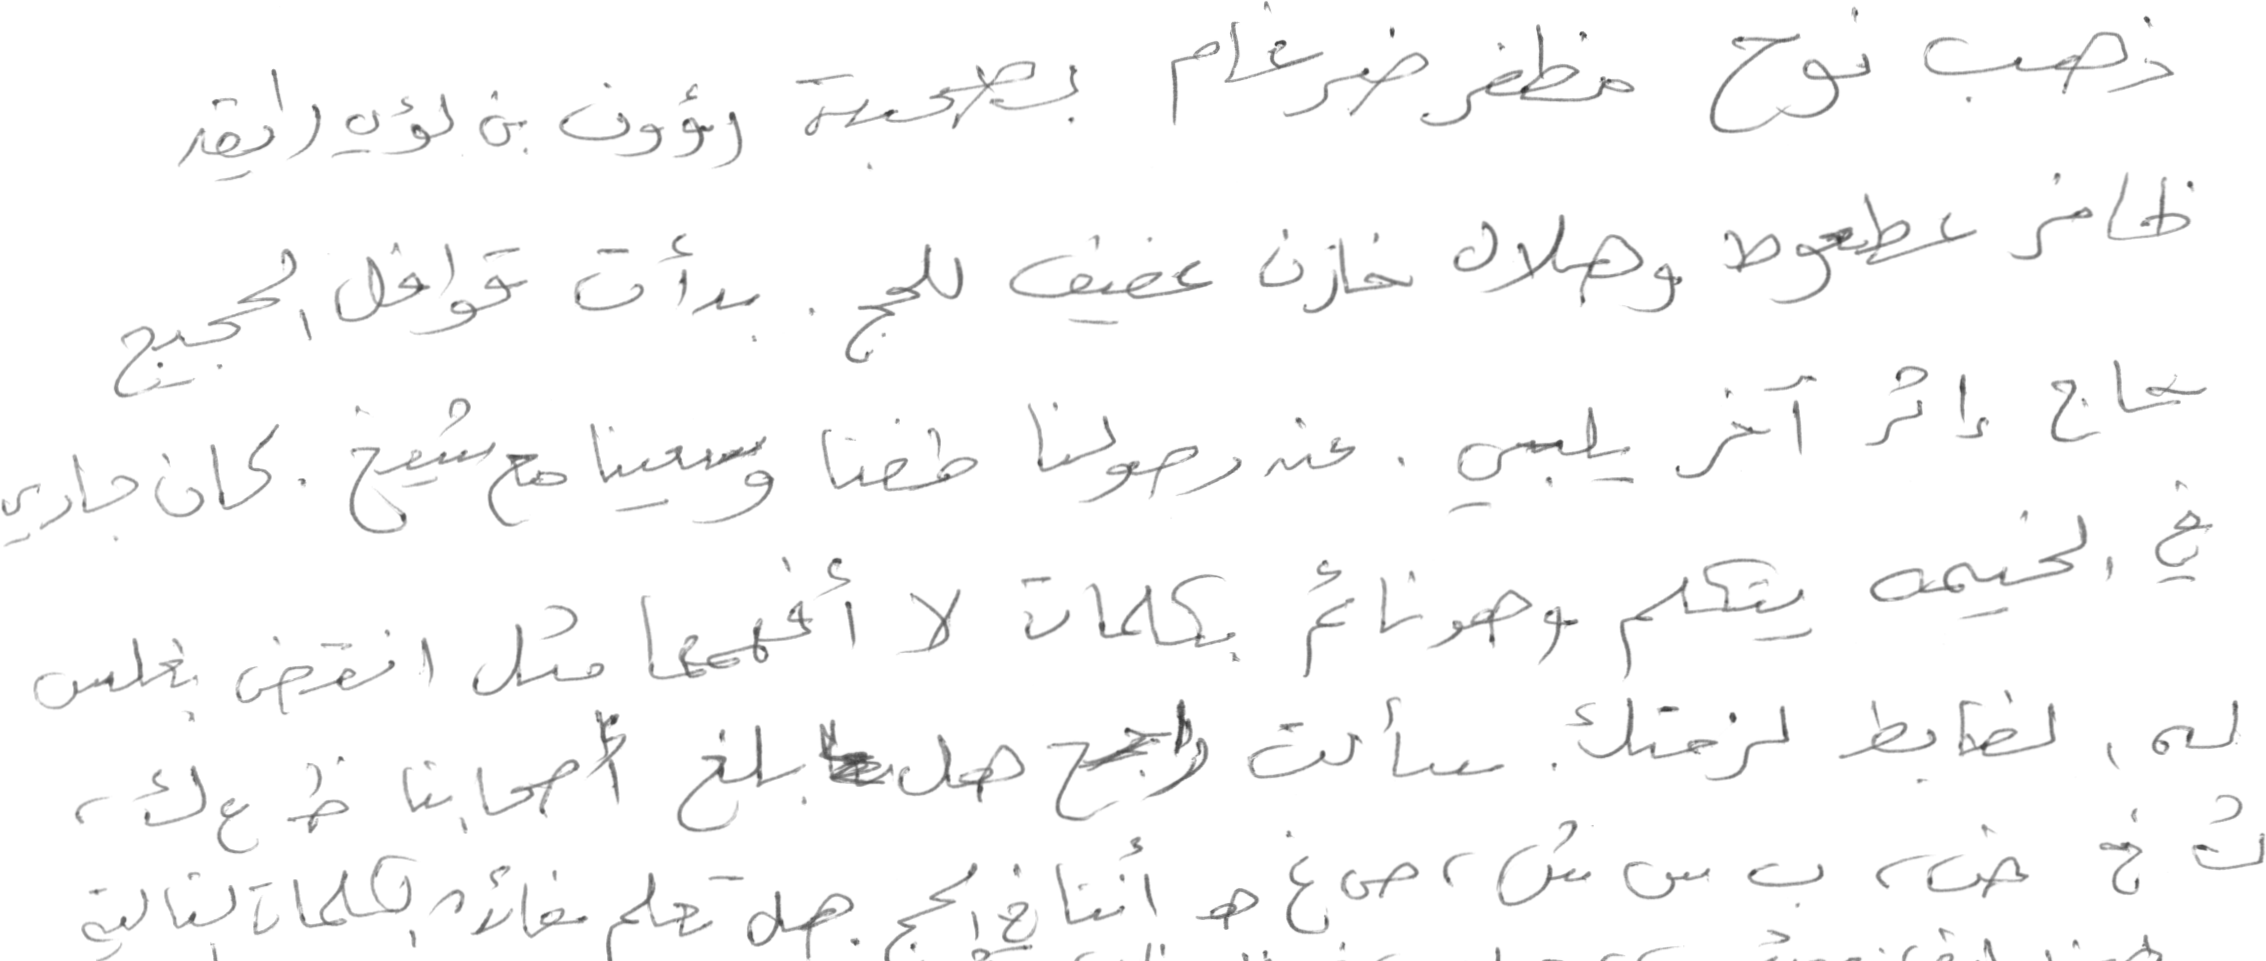 ذهب نوح مظفر ضرغام بصحبة رؤوف بن لؤي رائد
ظافر عطعوط وهلال خازن عفيف للحج . بدأت قوافل الحجيج
حاج إثر آخر يلبي . عند وصولنا طفنا وسعينا مع شيخ . كان جاري
في الخيمه يتكلم وهو نائم بكلمات لا أفهمها مثل انقض بغلس
له الضابط لزمتك . سألت راجح هل بلغ أصحابنا ظ ع ك ،
ث خ ض ، ب س ش ، ص غ هـ أننا في الحج . هل تعلم بالكلمات التالية